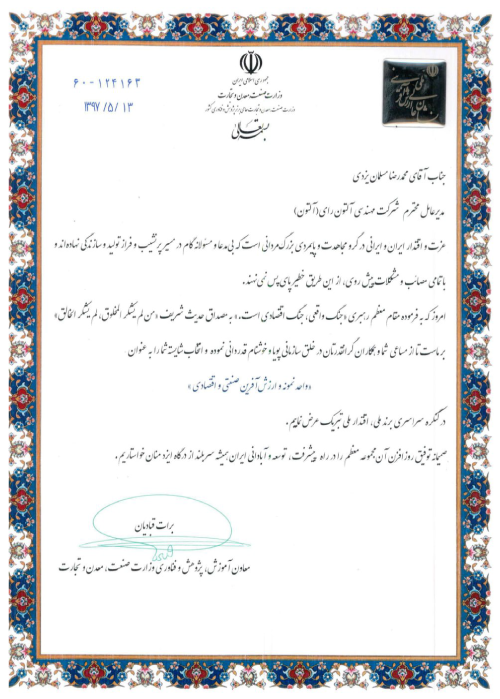 ۶۰-۱۲۴۱۶۳
۱۳ /۵/ ۱۳۹۷
جمهوری اسلامی ایران
وزارت صنعت معدن و تجارت
بسمه تعالی
جناب آقای محمدرضا مسلمان یزدی
مدیرعامل محترم شرکت مهندسی آلتون رای (آلتون)
عزت و اقتدار ایران و ایرانی در گرو مجاهدت و پایمردی بزرگ مردانی است که بی مدعا و مسئولانه گام در مسیر پرنشیب و فراز تولید و سازندگی نهاده‌اند و
با تمامی مصائب و مشکلات پیش روی، از این طریق خطیر پای پس نمی نهند.
امروز که به فرموده مقام معظم رهبری «جنگ واقعی، جنگ اقتصادی است.» به مصداق حدیث شریف «من لم یشکر المخلوق، لم یشکر الخالق»
بر ماست تا از مساعی شما و همکاران گرانقدرتان در خلق سازمانی پویا و خوشنام قدردانی نموده و انتخاب شایسته شما را به عنوان
«واحد نمونه و ارزش آفرین صنعتی و اقتصادی»
در کنگره سراسری برند ملی، اقتدار ملی تبریک عرض نمایم.
صمیمانه توفیق روز افزن آن مجموعه معظم را در راه پیشرفت، توسعه و آبادانی ایران همیشه سربلند از درگاه ایزد منان خواستاریم.
برات قبادیان
معاون آموزش، پژوهش و فناوری وزارت صنعت، معدن و تجارت